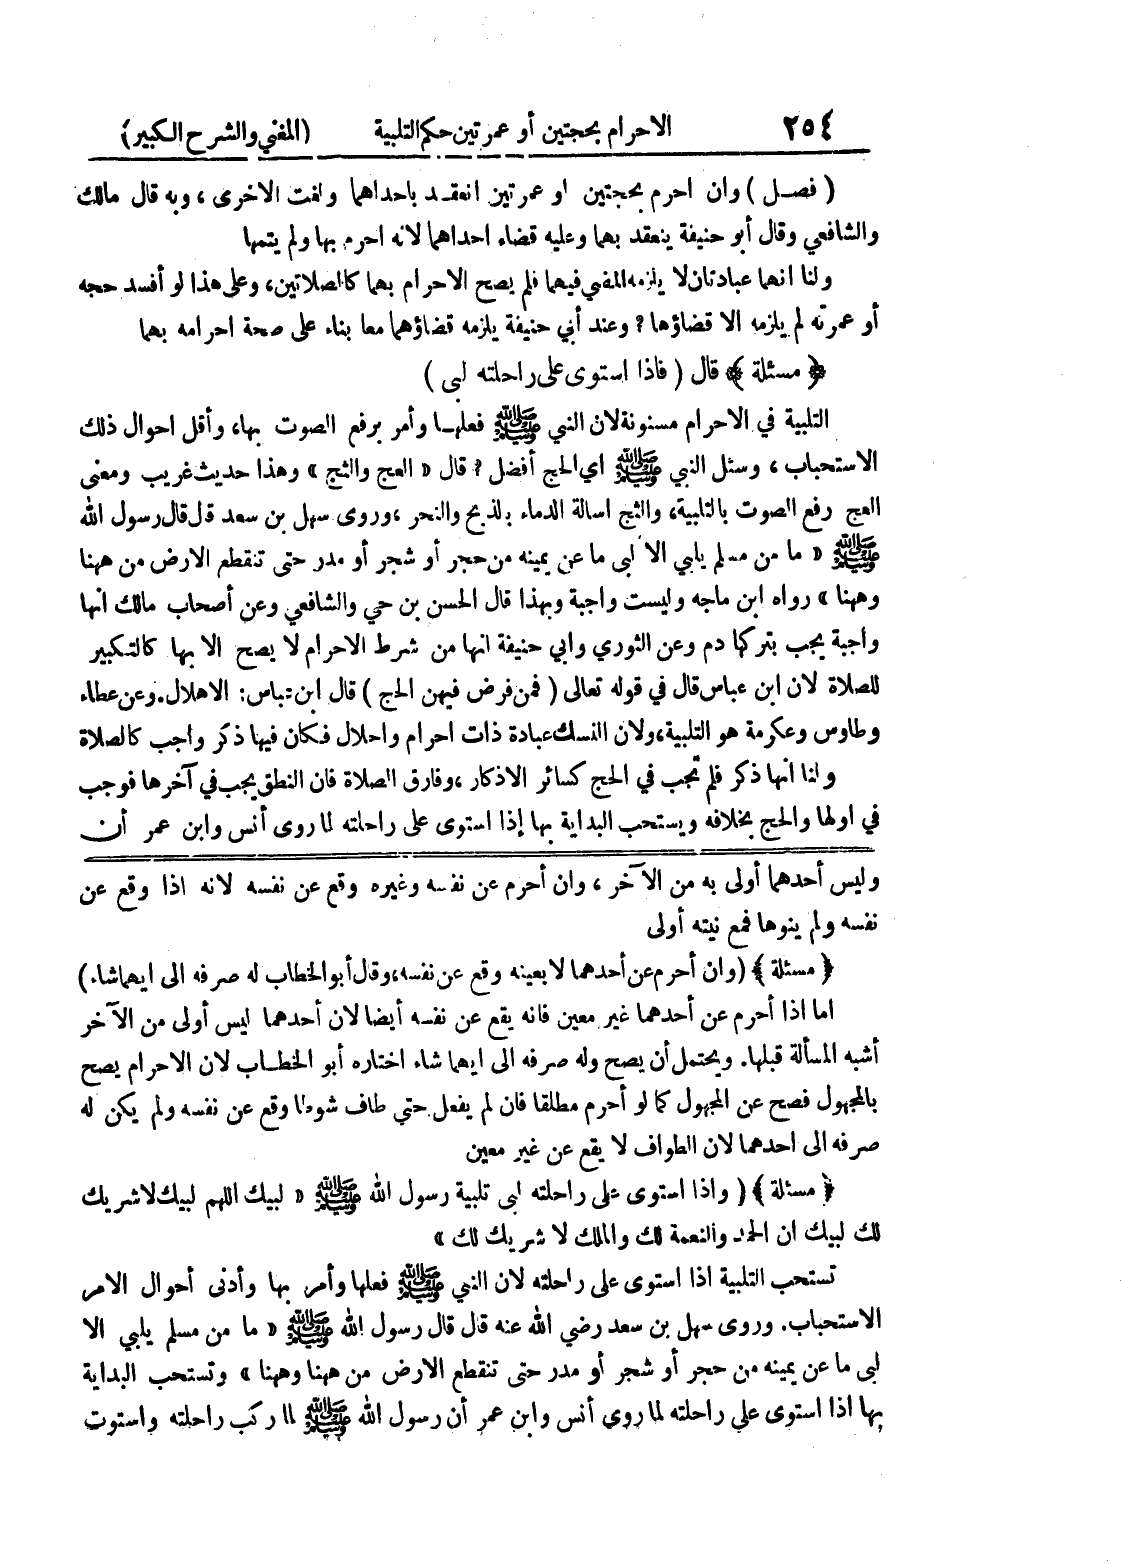 ٢٥٤ الاحرام بحجتين أو عمرتين حكم التلبية (المغني والشرح الكبير)
( فصل ) وان احرم بحجتين او عمرتين انعقد باحداهما ولغت الاخرى ، وبه قال مالك
والشافعي وقال أبو حنيفة ينعقد بهما وعليه قضاء احداهما لانه احرم بها ولم يتمها
ولنا انهما عبادتان لا يلزمه المضي فيهما فلم يصح الاحرام بهما كالصلاتين، وعلى هذا لو أفسد حجه
أو عمرته لم يلزمه الا قضاؤها ? وعند أبي حنيفة يلزمه قضاؤهما معا بناء على صحة احرامه بهما
﴿ مسئلة ﴾ قال ( فاذا استوى على راحلته لبى )
التلبية في الاحرام مسنونة لان النبي ﷺ فعلها وأمر برفع الصوت بها، وأقل احوال ذلك
الاستحباب ، وسئل النبي ﷺ اي الحج أفضل ? قال « العج والثج » وهذا حديث غريب ومعنى
العج رفع الصوت بالتلبية، والثج اسالة الدماء بالذبح والنحر ،وروى سهل بن سعد قال قال رسول الله
ﷺ « ما من مسلم يلبي الا لبى ما عن يمينه من حجر أو شجر أو مدر حتى تنقطع الارض من ههنا
وههنا » رواه ابن ماجه وليست واجبة وبهذا قال الحسن بن حي والشافعي وعن أصحاب مالك انها
واجبة يجب بتركها دم وعن الثوري وابي حنيفة انها من شرط الاحرام لا يصح الا بها كالتكبير
للصلاة لان ابن عباس قال في قوله تعالى ( فمن فرض فيهن الحج ) قال ابن عباس: الاهلال. وعن عطاء
وطاوس وعكرمة هو التلبية، ولان النسك عبادة ذات احرام واحلال فكان فيها ذكر واجب كالصلاة
ولنا انها ذكر فلم تجب في الحج كسائر الاذكار ،وفارق الصلاة فان النطق يجب في آخرها فوجب
في اولها والحج بخلافه ويستحب البداية بها إذا استوى على راحلته لما روى أنس وابن عمر أن
وليس أحدهما أولى به من الآخر ، وان أحرم عن نفسه وغيره وقع عن نفسه لانه اذا وقع عن
نفسه ولم ينوها فمع نيته أولى
﴿ مسئلة ﴾ (وان أحرم عن أحدهما لا بعينه وقع عن نفسه، وقال أبو الخطاب له صرفه الى ايهما شاء )
اما اذا أحرم عن أحدهما غير معين فانه يقع عن نفسه أيضا لان أحدهما ليس أولى من الآخر
أشبه المسألة قبلها. ويحتمل أن يصح وله صرفه الى ايهما شاء اختاره أبو الخطاب لان الاحرام يصح
بالمجهول فصح عن المجهول كما لو أحرم مطلقا فان لم يفعل حتى طاف شوطا وقع عن نفسه ولم يكن له
صرفه الى احدهما لان الطواف لا يقع عن غير معين
﴿ مسئلة ﴾( واذا استوى على راحلته لبى تلبية رسول الله ﷺ « لبيك اللهم لبيك لا شريك
لك لبيك ان الحمد والنعمة لك والملك لا شريك لك »
تستحب التلبية اذا استوى على راحلته لان النبي ﷺ فعلها وأمر بها وأدنى أحوال الامر
الاستحباب. وروى سهل بن سعد رضي الله عنه قال قال رسول الله ﷺ « ما من مسلم يلبي الا
لبى ما عن يمينه من حجر أو شجر أو مدر حتى تنقطع الارض من ههنا وههنا » وتستحب البداية
بها اذا استوى على راحلته لما روى أنس وابن عمر أن رسول الله ﷺ لما ركب راحلته واستوت